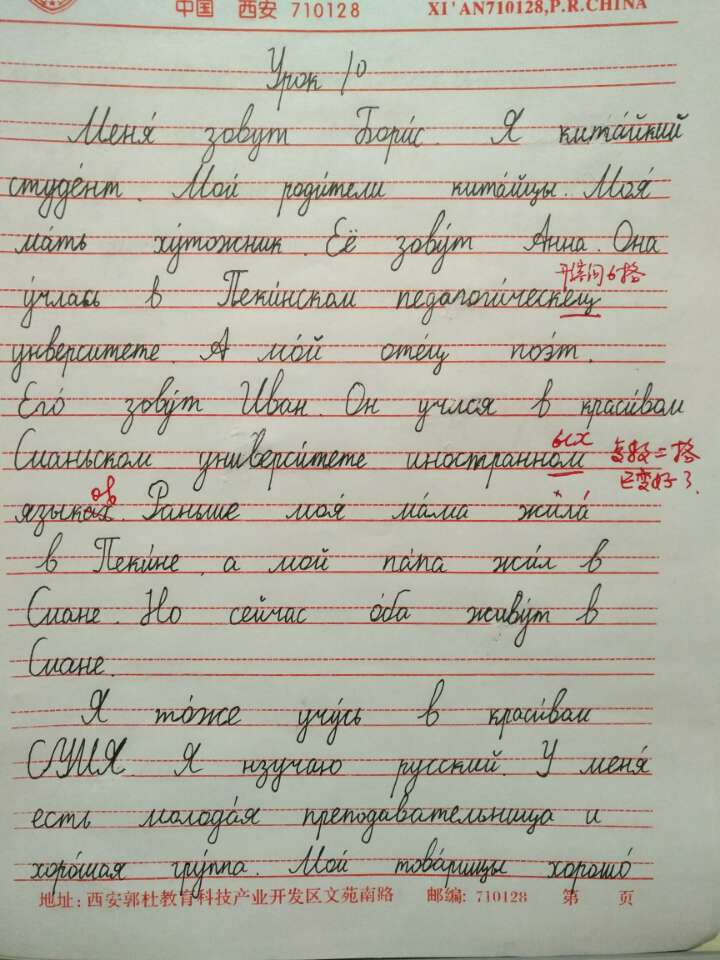 中国 西安 710128 XI'AN710128,P.R.CHINA
Урок 10
Меня́ зову́т Бори́с. Я кита́йкий
студе́нт. Мои́ роди́тели кита́йцы. Моя́
ма́ть ху́тожник. Её зову́т Анна. Она
у́члась в Пеки́нском педагоги́ческещ
形容词6格
унверситете. А мо́й оте́ц поэ́т.
Его́ зову́т Иван. Он учлся в краси́вом
Сианьском универси́тете иностранном
ых 复数二格
языках. Раньше моя́ ма́ма жила́
ов 已变好了.
в Пеки́не, а мой па́па жи́л в
Сиане. Но сейчас о́ба живу́т в
Сиане.
Я то́же учу́сь в краси́вом
СУИЯ. Я изучаю русский. У меня́
есть молода́я преподавательница и
хоро́шая гру́ппа. Мои́ това́рищы хорошо́
地址: 西安郭杜教育科技产业开发区文苑南路 邮编: 710128 第 页